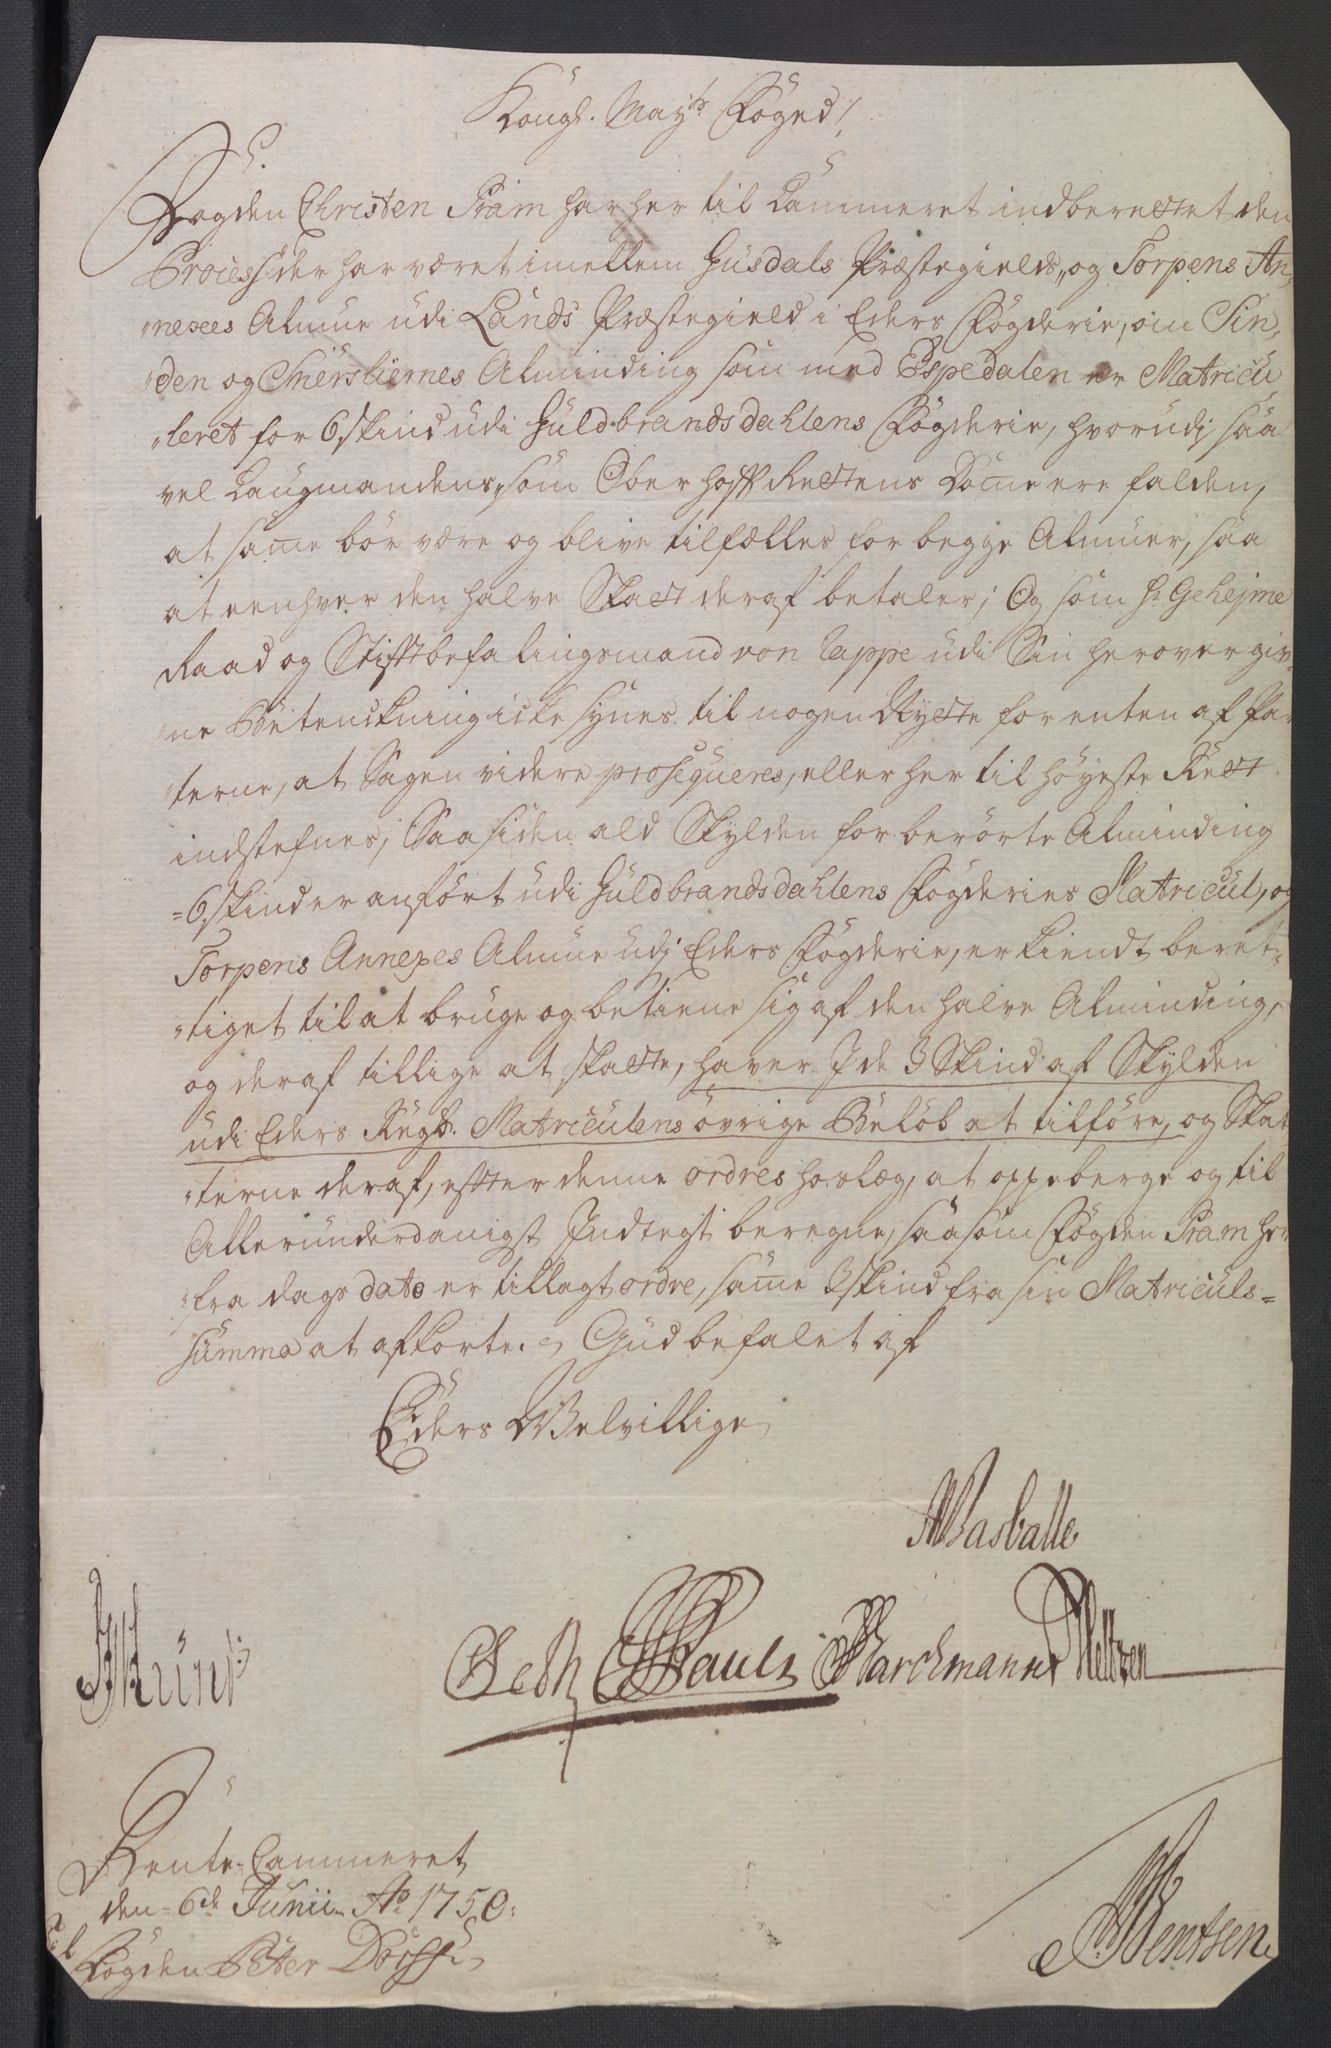 Kongl. Mayts Foged!
Fogden Christen Pram har her til Cammeret indberettet den
Process, der har været imellem Gusdals Præstegields, og Torpens An-
nexes Almue udi Lands Præstegield i Eders Fogderie, om Sin-
den og Smersliernes Alminding som med Espedalen er Matricu
leret for 6 skind udi Guldbrandsdahlens Fögderie, hvorudj saa
vel Laugmandens, som Ober hoff Rettens Domme ere falden,
at samme bör være og blive tilfælles for begge Almuer, saa
at eenhver den halve Skatt deraf betaler; Og som hr Geheime
Raad og Stifftbefalingsmand von Rappe udi Sin herover giv-
ne Betenckning icke synes til nogen Nytte for enten af Par
terne, at Sagen videre proseqveres, eller her til höyeste Rett
indstefnes; Saa siden ald Skylden for berörte Alminding
6 skind er anfört udi Guldbrandsdahlens Fogderies Matricul, og
Torpens Annexes Almue udj Eders Fögderie, er kiendt beret-
tiget til at bruge og betiene sig af den halve Alminding,
og deraf tillige at skatte, haver I de 3 Skind af Skylden
udi Eders Regsk. Matriculens övrige Belöb at tilföre, og Skat
terne deraf, efter denne ordres hoslæg, at oppeberge og til
Allerunderdanigst Indtegt beregne, saasom Fögden Pram her
fra dags dato er tillagt ordre, samme 3 skind fra sin Matriculs-
summa at afkorte. Gud befalet af
Eders Velvillige
Wasballe
Künd
Seth Pauli Barchmann Neltzen
Rente-Cammeret
den 6de Junii Ao 1750.
Bentsen
Til
Fogden Peter Dorph